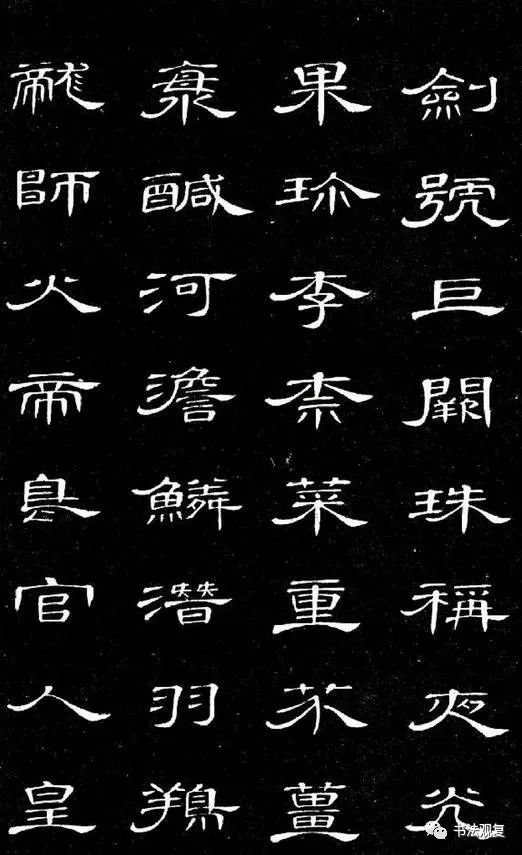 劍號巨闕珠稱夜光
果珍李柰菜重芥薑
海醎河澹鱗潛羽翔
龍師火帝鳥官人皇
书法观复